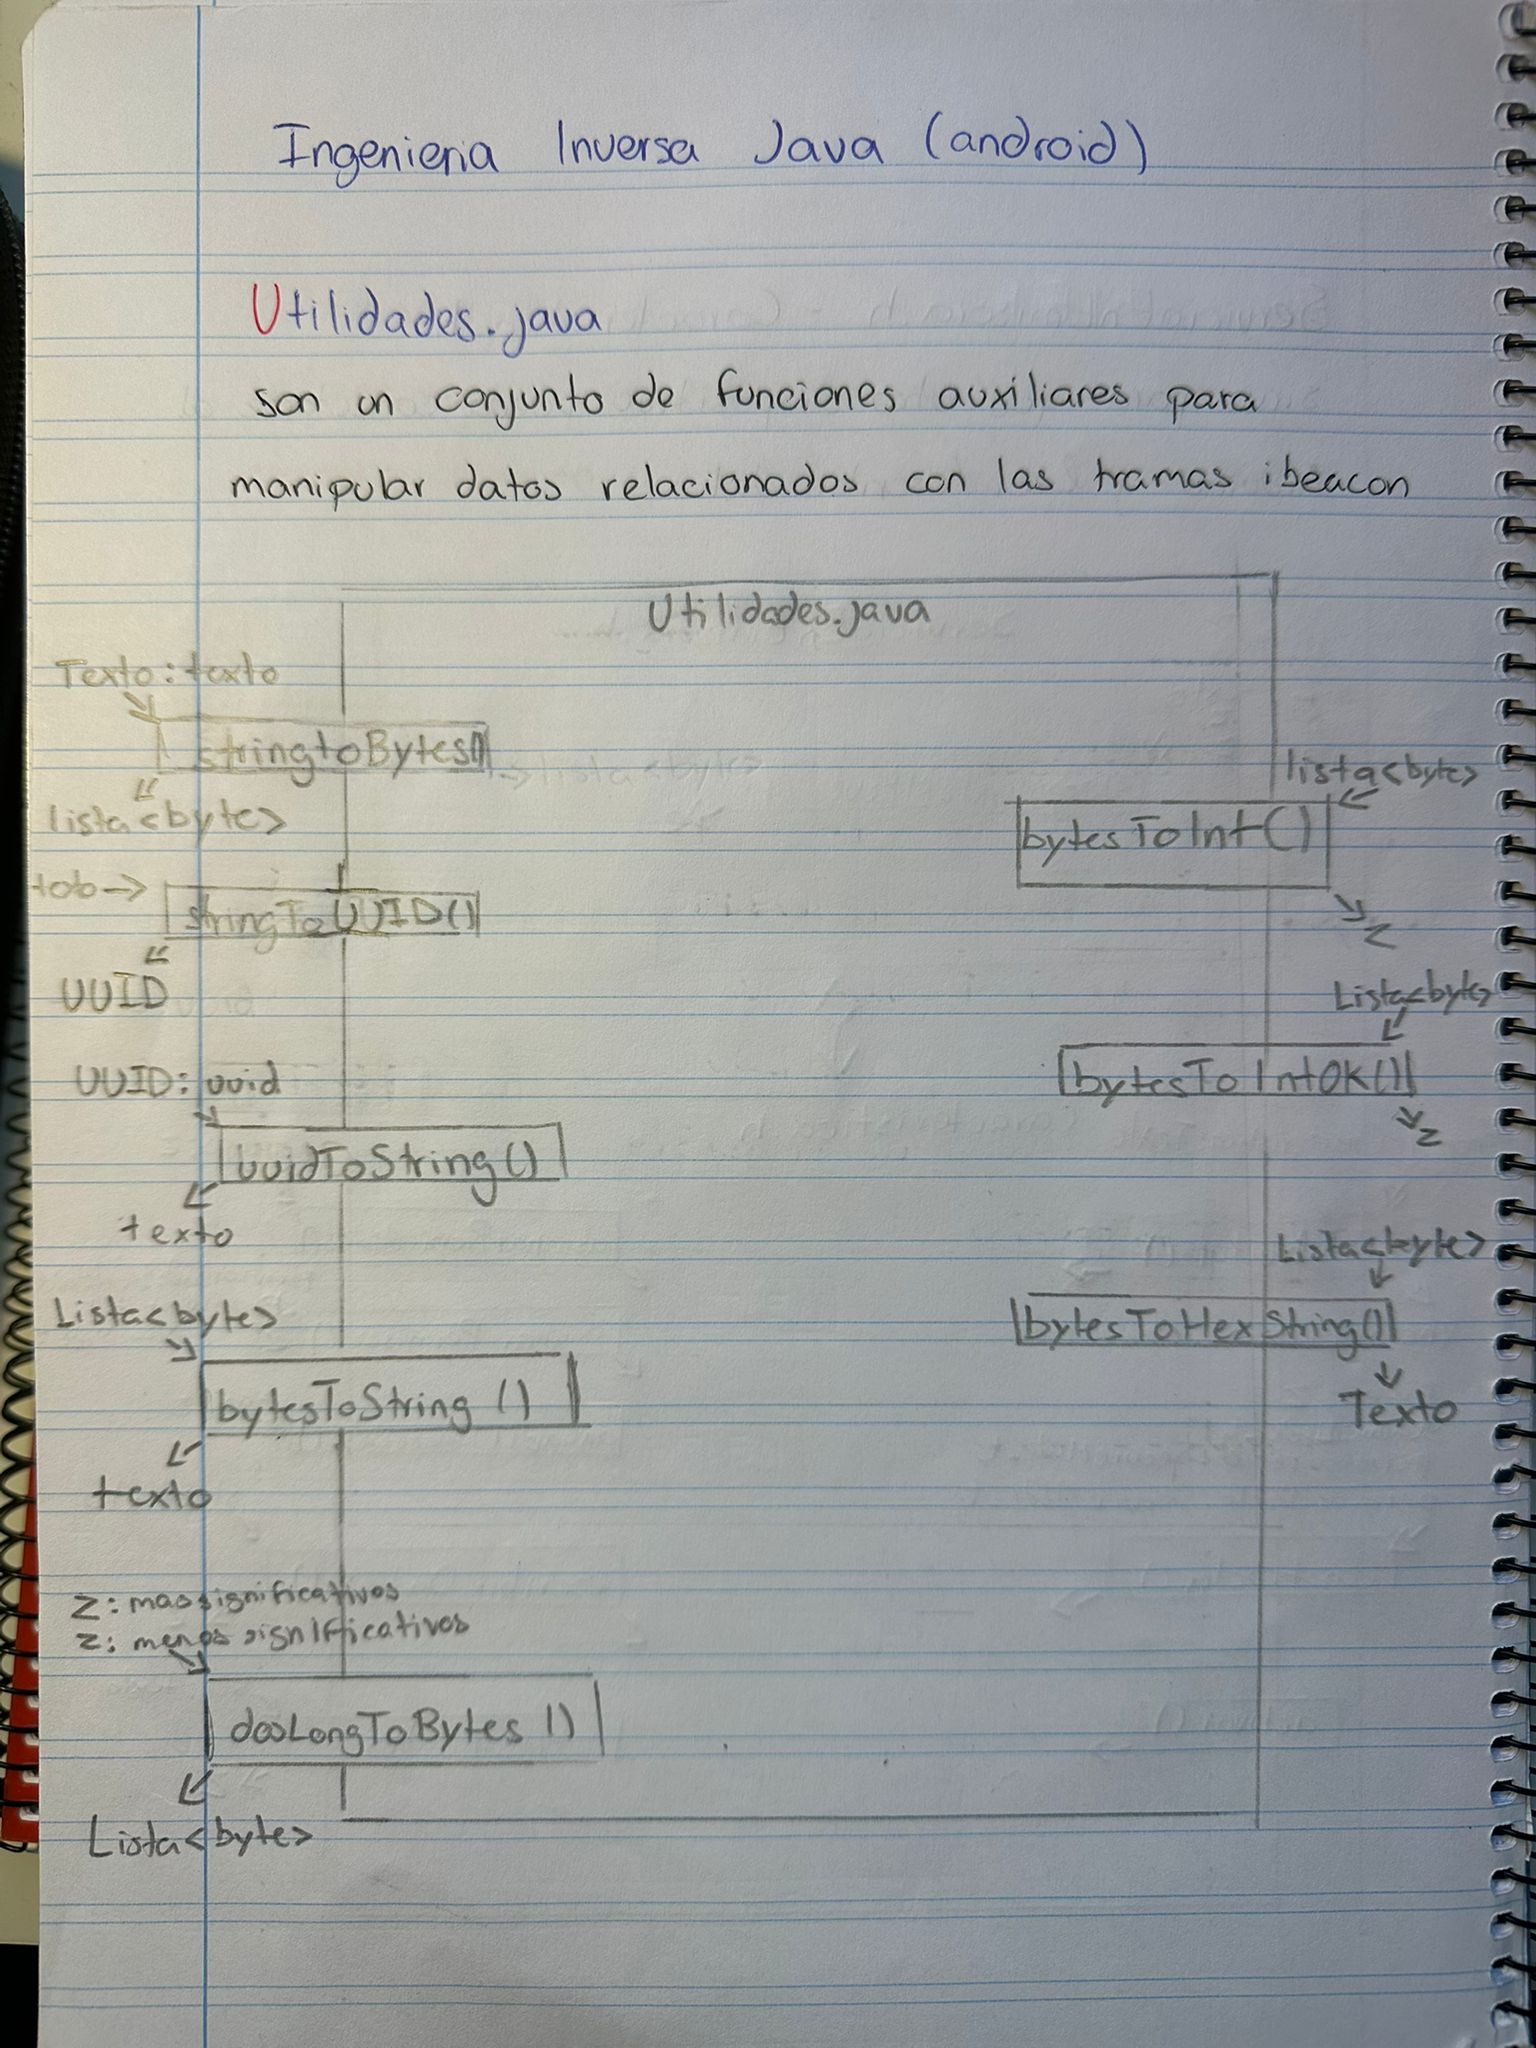 Ingenieria Inversa Java (android)
Utilidades.java
son un conjunto de funciones auxiliares para
manipular datos relacionados con las tramas ibeacon
Utilidades.java
Texto: texto
stringtoBytes()
lista<byte>
stringToUUID()
UUID
UUID: uuid
uuidToString()
texto
Lista<byte>
bytesToString ()
texto
Z: mas significativos
Z: menos significativos
dosLongToBytes ()
Lista<byte>
lista<byte>
bytesToInt()
Z
Lista<byte>
bytesToIntOK()
Z
Lista<byte>
bytesToHexString()
Texto